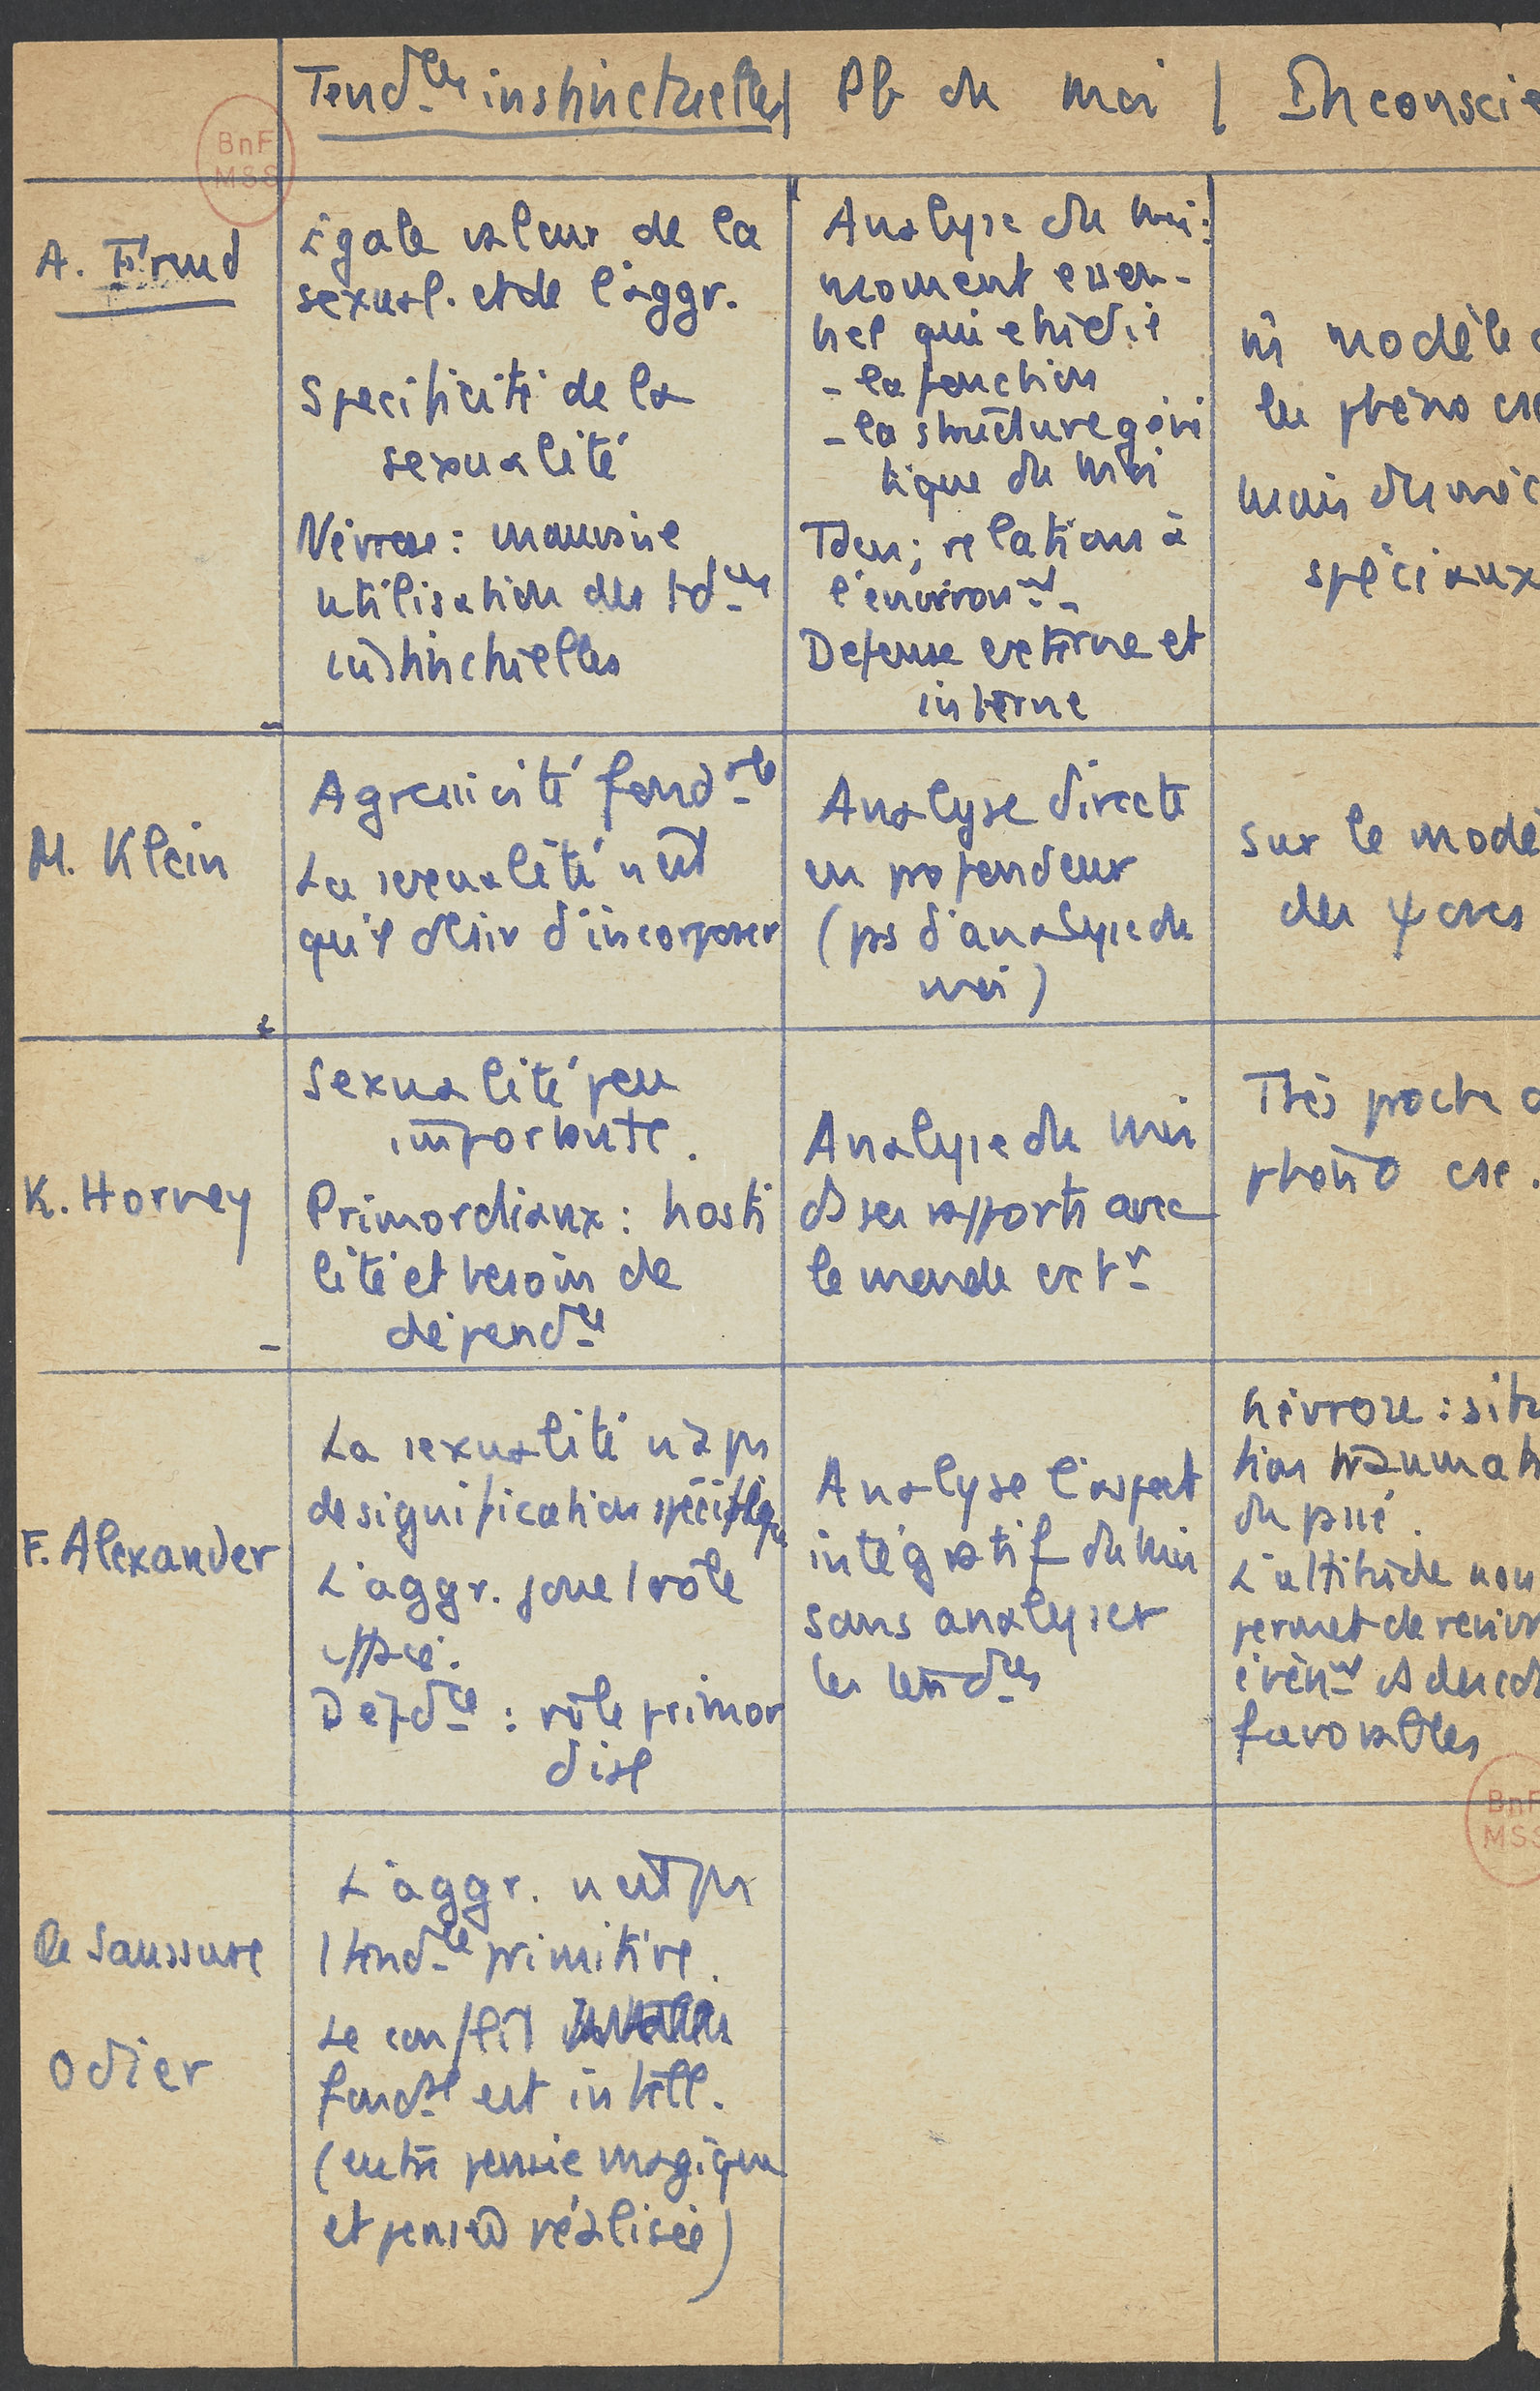 Tend^ces instinctuelles / Pb du moi / Inconscie
BnF
MSS
A. Freud
égale valeur de la
sexual. et de l'aggr.
Spécificité de la
sexualité
Névrose : mauvaise
utilisation des td^ces
instinctuelles
Analyse du moi :
moment essen-
tiel qui étudie
- la fonction
- la structure géné
tique du moi
Iden ; relation à
l'environ^nt
Defense externe et
interne
ni modèle
les phéno cs
mais du méc
spéciaux
M. Klein
Agressivité fond^ale
La sexualité n'est
que le désir d'incorporer
Analyse directe
en profondeur
(pas d'analyse du
moi)
Sur le modè
des ψ cses
K. Horney
Sexualité peu
importante.
Primordiaux : hosti
lité et besoin de
dépend^ce
Analyse du moi
ds ses rapports avec
le monde ext^r
Très proche
phéno cse.
F. Alexander
La sexualité n'a pas
de signification spécifique
L'aggr. joue 1 rôle
effacé.
Dépd^ce : rôle primor
dial
Analyse l'aspect
intégratif du moi
sans analyser
les tend^ces
névrose : situ
tion traumat
du passé.
L'attitude nou
permet de reviv
évèn^nt ds des cd
favorables
BnF
MSS
de Saussure
Odier
L'aggr. n'est pas
1 tend^ce primitive.
Le conflit
fond^al est intell.
(entre pensée magique
et pensée réalisée)